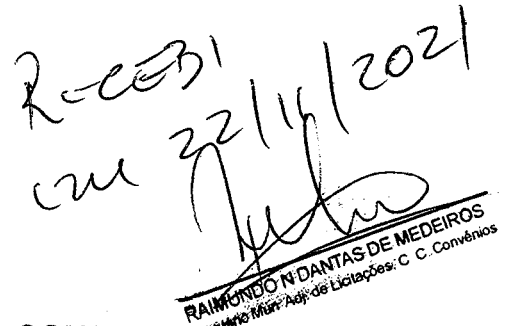 RECEBI
em 22/11/2021
RAIMUNDO N DANTAS DE MEDEIROS
Mun. Adj. de Licitações, C. C. Convênios